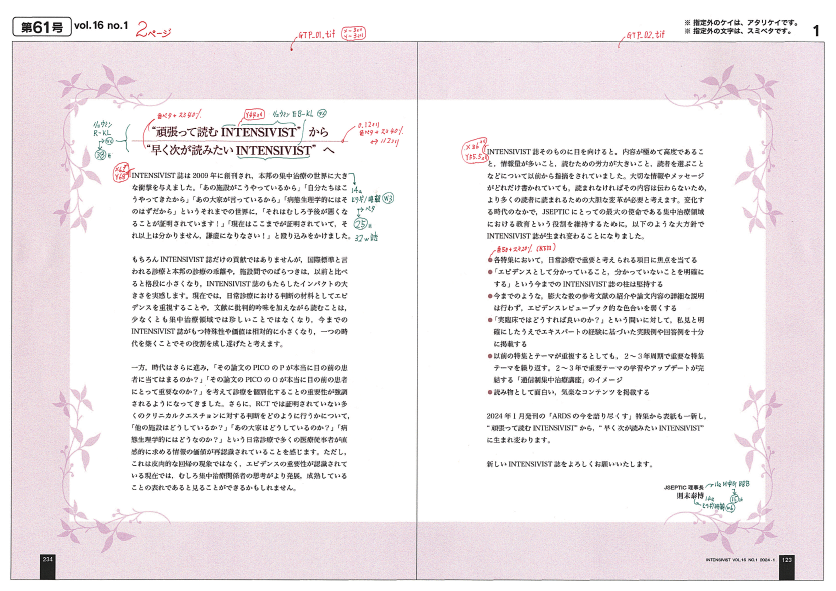 第61号
vol.16 no.1
2ページ
GTP_01.tif
GTP_02.tif
※ 指定外のケイは、アタリケイです。
※ 指定外の文字は、スミベタです。
1
“頑張って読む INTENSIVIST” から
“早く次が読みたい INTENSIVIST” へ
INTENSIVIST 誌は 2009 年に創刊され、本邦の集中治療の世界に大き
な衝撃を与えました。「あの施設がこうやっているから」「自分たちはこ
うやってきたから」「あの大家が言っているから」「病態生理学的にはそ
のはずだから」というそれまでの世界に、「それはむしろ予後が悪くな
ることが証明されています！」「現在はここまでが証明されていて、そ
れ以上は分かりません、謙虚になりなさい！」と殴り込みをかけました。
もちろん INTENSIVIST 誌だけの貢献ではありませんが、国際標準と言
われる診療と本邦の診療の乖離や、施設間でのばらつきは、以前と比べ
ると格段に小さくなり、INTENSIVIST 誌のもたらしたインパクトの大
きさを実感します。現在では、日常診療における判断の材料としてエビ
デンスを重視することや、文献に批判的吟味を加えながら読むことは、
少なくとも集中治療領域では珍しいことではなくなり、今までの
INTENSIVIST 誌がもつ特殊性や価値は相対的に小さくなり、一つの時
代を築くことでその役割を成し遂げたと考えます。
一方、時代はさらに進み、「その論文の PICO の P が本当に目の前の患
者に当てはまるのか？」「その論文の PICO の O が本当に目の前の患者
にとって重要なのか？」を考えて診療を個別化することの重要性が強調
されるようになってきました。さらに、RCT では証明されていない多
くのクリニカルクエスチョンに対する判断をどのように行うかについて、
「他の施設はどうしているか？」「あの大家はどうしているのか？」「病
態生理学的にはどうなのか？」という日常診療で多くの医療従事者が直
感的に求める情報の価値が再認識されていることを感じます。ただし、
これは皮肉的な回帰の現象ではなく、エビデンスの重要性が認識されて
いる現在では、むしろ集中治療関係者の思考がより発展、成熟している
ことの表れであると見ることができるかもしれません。
INTENSIVIST 誌そのものに目を向けると。内容が極めて高度であるこ
と、情報量が多いこと、読むための労力が大きいこと、読者を選ぶこと
などについて以前から指摘をされていました。大切な情報やメッセージ
がどれだけ書かれていても、読まれなければその内容は伝わらないため、
より多くの読者に読まれるための大胆な変革が必要と考えます。変化す
る時代のなかで、JSEPTIC にとっての最大の使命である集中治療領域
における教育という役割を維持するために。以下のような大方針で
INTENSIVIST 誌が生まれ変わることになりました。
●各特集において、日常診療で重要と考えられる項目に焦点を当てる
●「エビデンスとして分かっていること、分かっていないことを明確に
する」という今までの INTENSIVIST 誌の柱は堅持する
●今までのような、膨大な数の参考文献の紹介や論文内容の詳細な説明
は行わず、エビデンスレビューブック的な色合いを弱くする
●「実臨床ではどうすれば良いのか？」という問いに対して、私見と明
確にしたうえでエキスパートの経験に基づいた実践例や回答例を十分
に掲載する
●以前の特集とテーマが重複するとしても、2〜3年周期で重要な特集
テーマを繰り返す。2〜3年で重要テーマの学習やアップデートが完
結する「通信制集中治療講座」のイメージ
●読み物として面白い、気楽なコンテンツを掲載する
2024 年 1 月発刊の「ARDS の今を語り尽くす」特集から表紙も一新し、
“頑張って読む INTENSIVIST” から、“早く次が読みたい INTENSIVIST”
に生まれ変わります。
新しい INTENSIVIST 誌をよろしくお願いいたします。
JSEPTIC 理事長
則末泰博
234
INTENSIVIST VOL.16 NO.1 2024-1
123